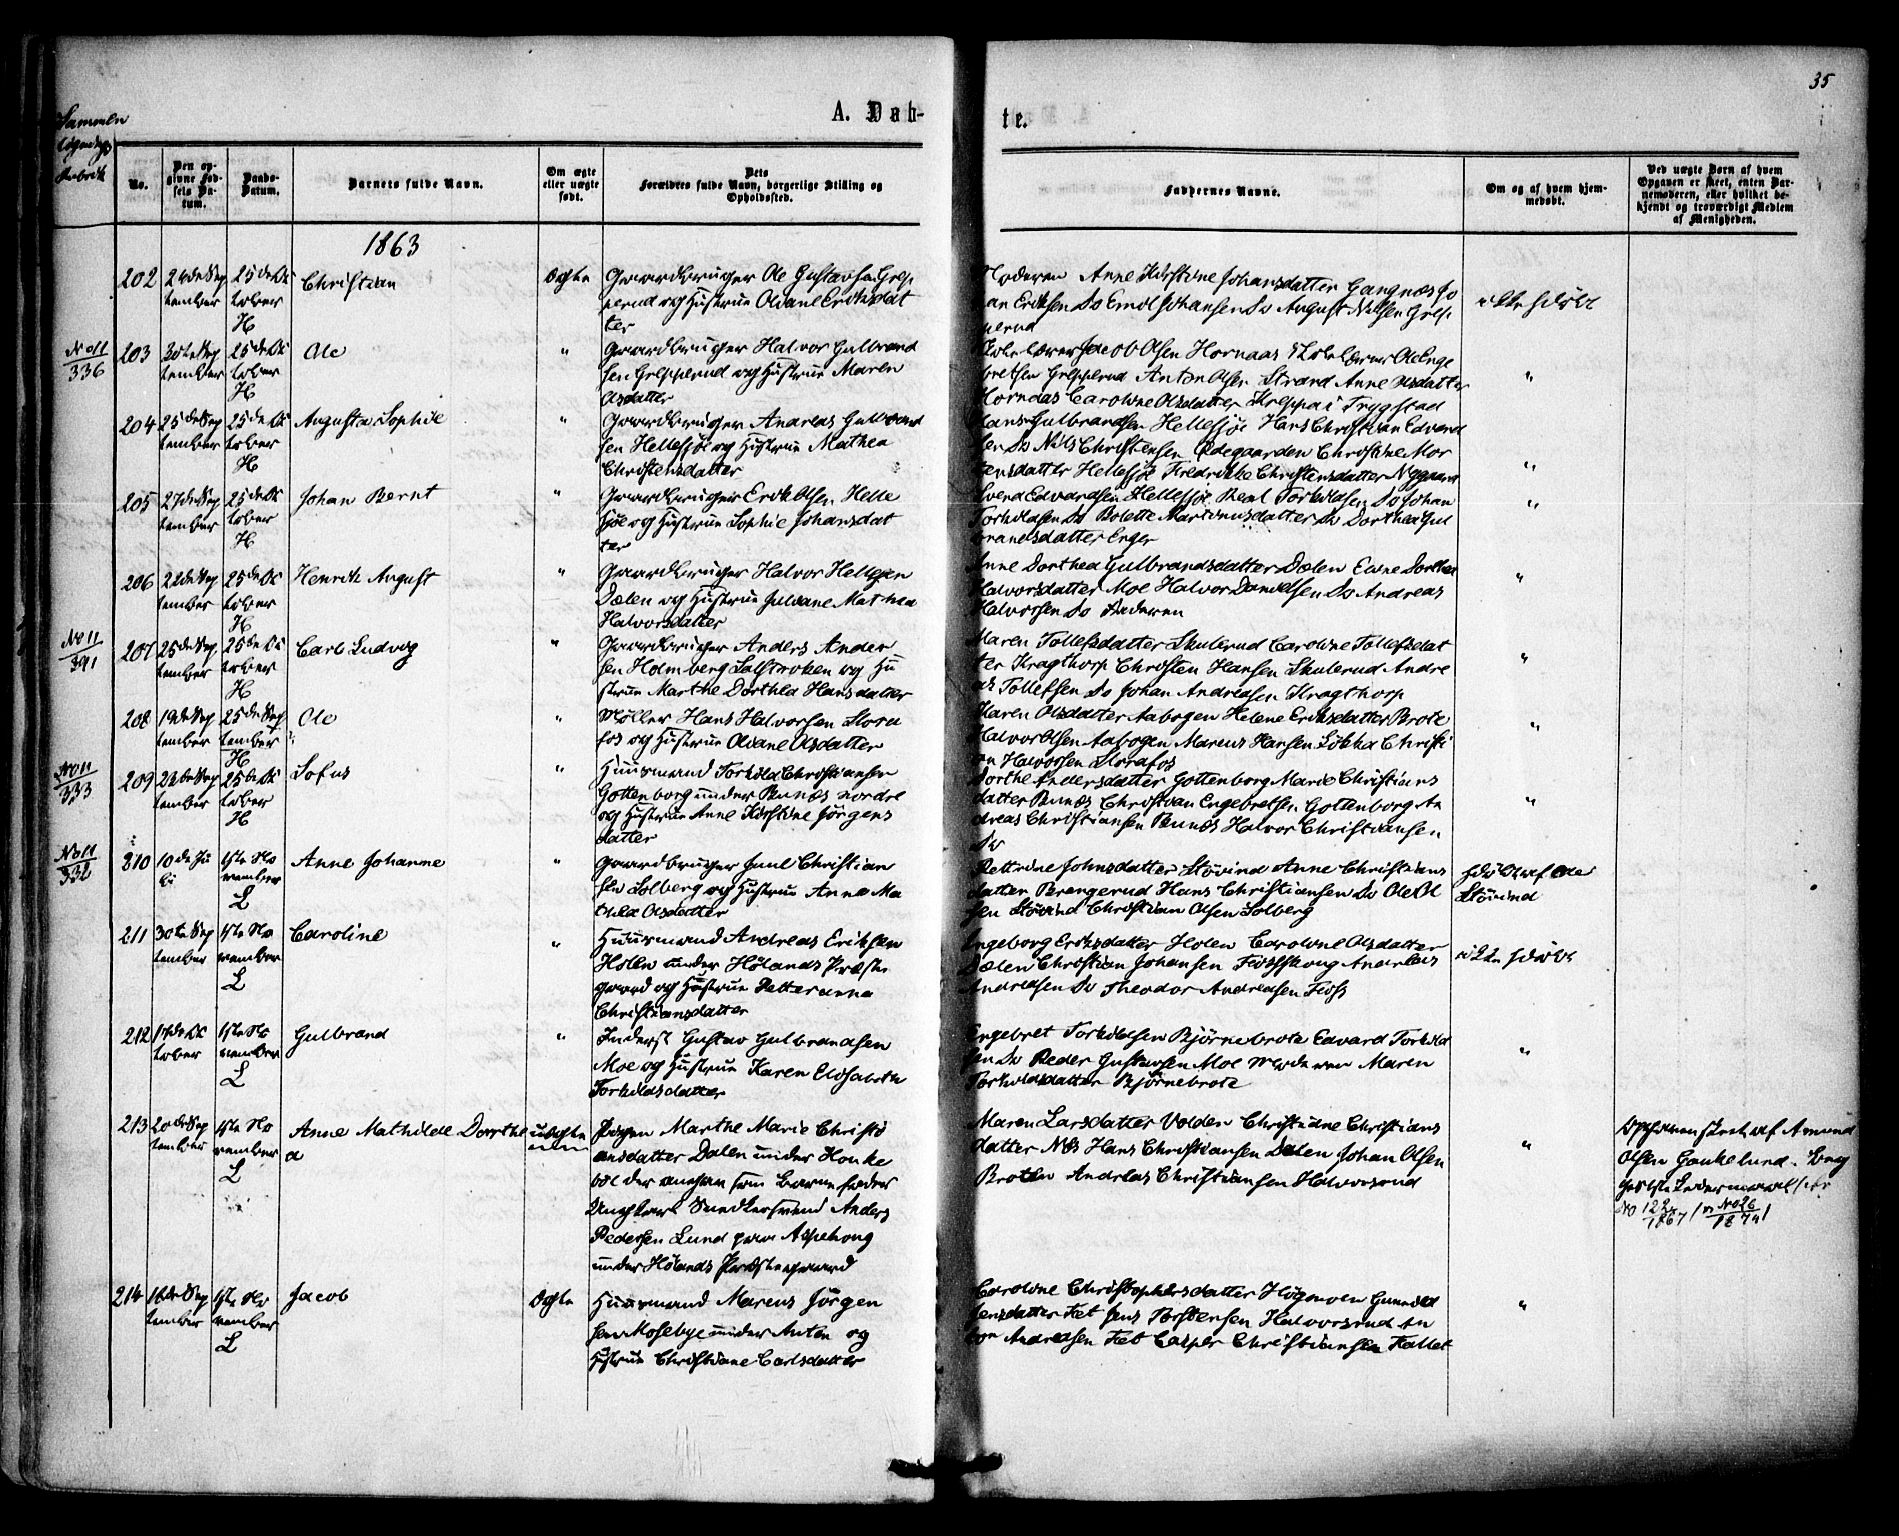 35
A. Døb-
te.
Sammeln
No.
Den op-
givne Fød-
sels Da-
tum.
Daabs-
Datum.
Barnets fulde Navn.
Om ægte
eller uægte
født.
Dets
Forældres fulde Navn, borgerlige Stilling og
Opholdssted.
Faddernes Navne.
Om og af hvem hjem-
medøbt.
Ved uægte Børn af hvem
Opgaven er skeet, enten Bar-
nemoderen, eller hvilket be-
kjendt og troværdigt Medlem
af Menigheden.
1863
202
24de Sep
tember
25de Oc
tober
H
Christian
Ægte
Gaardbruger Ole Gustavsen Grep
perud og Hustrue Olvane Eriksdat
ter
Moderen Anne Kirstine Johansdatter Gangnæs Jo
an Eriksen Do Emil Johansen Do August Nilsen Grep
perud
ikke hjdøbt
No 11
336
203
30te Sep
tember
25de Oc
tober
H
Ole
"
Gaardbruger Halvor Gulbrand
sen Grepperud og Hustrue Maren
Olsdatter
Skolelærer Jacob Olsen Hornaas Skolelærer Ole Enge
bretsen Grepperud Anton Olsen Strand Anne Olsdatter
Hornaas Caroline Olsdatter Kreppa i Trygstad
"
204
25de Sep
tember
25de Oc
tober
H
Augusta Sophie
"
Gaardbruger Andreas Gulbrand
sen Hellesjøe og Hustrue Mathea
Christensdatter
Hans Gulbrandsen Hellesjøe Hans Christian Edvard
sen Do Nils Christensen Ødegaarden Christine Mor
tensdatter Hellesjøe Fredrikke Christensdatter Nygaard
"
205
27de Sep
tember
25de Oc
tober
H
Johan Bernt
"
Gaardbruger Erik Olsen Helle
sjøe og Hustrue Sophie Johansdat
ter
Svend Edvardsen Hellesjøe Bent Torkildsen Do Johan
Torkildsen Do Bolette Martinusdatter Do Dorthea Gul
brandsdatter Enger
"
206
22de Sep
tember
25de Oc
tober
H
Henrik August
"
Gaardbruger Halvor Hellesen
Dælen og Hustrue Gulvane Mathea
Halvorsdatter
Anne Dorthea Gulbrandsdatter Dælen Eline Dorthea
Halvorsdatter Moe Halvor Danielsen Do Andreas
Halvorsen Do Faderen
"
No 11
341
207
25de Sep
tember
25de Oc
tober
H
Carl Ludvig
"
Gaardbruger Anders Ander
sen Holmberg Solstroken og Hu
strue Marthe Dorthea Hansdatter
Maren Tollefsdatter Skulerud Caroline Tollefsdat
ter Kragthorp Christen Hansen Skulerud Andre
as Tollefsen Do Johan Andreasen Kragthorp
"
208
19de Sep
tember
25de Sep
tember
H
Ole
"
Møller Hans Halvorsen Stora
fos og Hustrue Olvane Olsdatter
Karen Olsdatter Aabogen Helene Eriksdatter Brote
Halvor Olsen Aabogen Marcus Hansen Løkka Christi
an Halvorsen Storafos
"
No 11
333
209
22de Sep
tember
25de Oc
tober
H
Sofus
"
Huusmand Torkild Christiansen
Gottenborg under Bunæs nordre
og Hustrue Anne Kirstine Jörgens
datter
Dorthe Andersdatter Gottenborg Marie Christians
datter Bunæs Christian Engebretsen Gottenborg An
dreas Christiansen Bunæs Halvor Christiansen
Do
"
No 11
332
310
10de Ju
li
1ste No
vember
L
Anne Johanne
"
Gaardbruger Juul Christian
sen Solberg og Hustrue Anne Ma
thea Olsdatter
Pettrine Johnsdatter Støvind Anne Christians
datter Brangerud Hans Christiansen Do Ole Ol
sen Støvind Christian Olsen Solberg
hjdøbt af Ole
Støvind
211
30te Sep
tember
1ste No
vember
L
Caroline
"
Huusmand Andreas Eriksen
Holen under Hølands Præste
gaard og Hustrue Petteranna
Christiansdatter
Ingeborg Eriksdatter Holen Caroline Olsdatter
Dælen Christian Johansen Fossskoug Andreas
Andreasen Do Theodor Andreasen Foss
ikke hjdøbt
212
17de Oc
tober
1ste No
vember
L
Gulbrand
"
Inderst Gustav Gulbrandsen
Moe og Hustrue Karen Elisabeth
Torkildsdatter
Engebret Torkildsen Bjørnebrote Edvard Torkild
sen Do Peder Gustavsen Moe Moderen Maren
Torkildsdatter Bjørnebrote
"
213
20de Sep
tember
1ste No
vember
L
Anne Mathilde Dorthe
a
uægte
Pigen Marthe Marie Christi
ansdatter Dalen under Honke
böl der angav som Barnefader
Ungkarl Snedkersvend Anders
Pedersen Lund paa Aspehoug
under Hølands Præstegaard
Maren Larsdatter Volden Christiane Christians
datter Næs Hans Christiansen Dalen Johan Olsen
Broten Andreas Christiansen Halvorsrud
"
Opgaven skeet af Amund
Olsen Gaukelund.
No 122
1867
No 26
1874
214
18de Sep
tember
1ste No
vember
L
Jacob
Ægte
Huusmand Marcus Jörgen
sen Mosebye under Anten og
Hustrue Christiane Carlsdatter
Caroline Christophersdatter Høgmoen Gunnild
Jensdatter Fæt Jens Torstensen Halvorsrud An
ton Andreasen Fæt Casper Christiansen Fallet
"